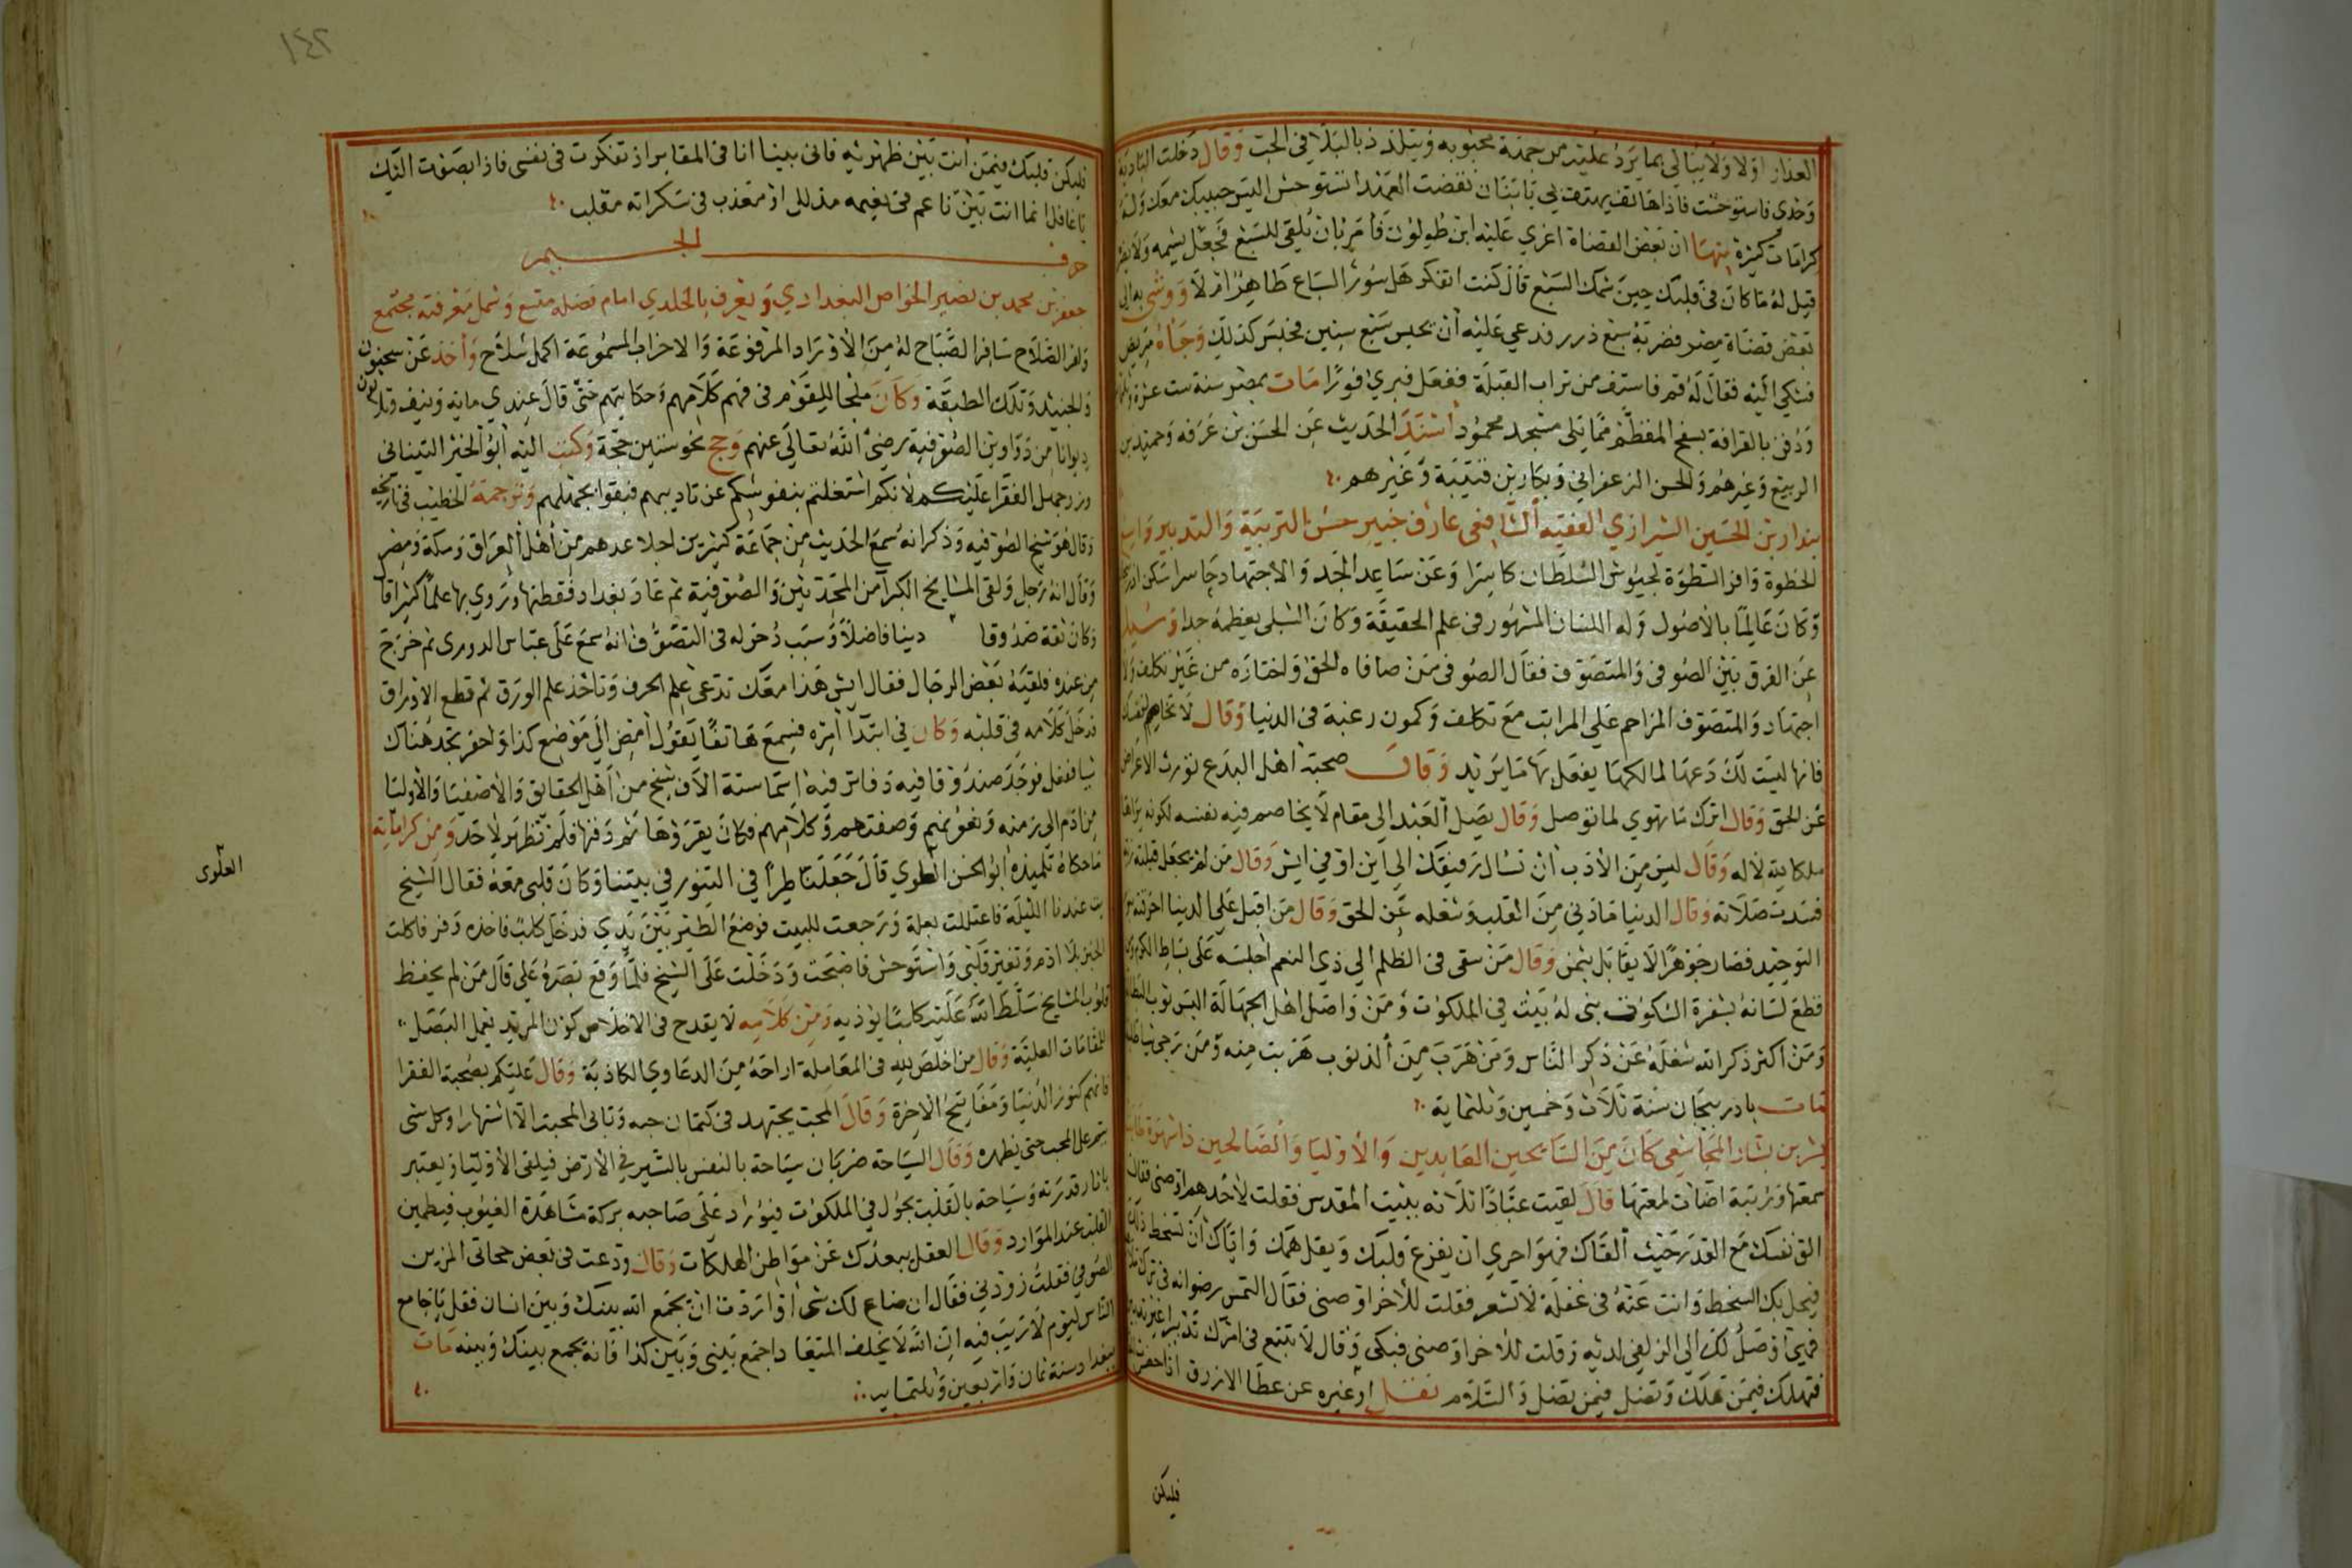 العذار اولا ولا يبالي بما يرد عليه من جهة محبوبه ويتلذذ بالبلا في الحب وقال دخلت البادية
وحدي فاستوحشت فاذا هاتف يهتف بي يا بنان نقضت العهد اتستوحش اليس حبيبك معك وله
كرامات كثيرة منها ان بعض القضاة اغري عليه ابن طولون فأمر بان يلقى للسبع فجعل يشمه ولا يضر
قيل له ما كان في قلبك حين شمك السبع قال كنت اتفكر هل سؤر السباع طاهر ام لا ووشى به الى
بعض قضاة مصر فضربه سبع درر فدعي عليه أن يحبس سبع سنين فحبس كذلك وجاه مريض
فشكي اليه فقال له قم فاستف من تراب القبلة ففعل فبري فورا مات بمصر سنة ست عشرة وثلثماية
ودفن بالقرافة بسفح المقطم مما يلي مسجد محمود أسند الحديث عن الحسن بن عرفه وحميد بن
الربيع وغيرهم والحسن الزعفراني وبكار بن قتيبة وغيرهم
بندار بن الحسين الشيرازي الفقيه الشافعي عارف خبير حسن التربية والتدبير واسع
الخطوة وافر السطوة لجيوش الشلطان كاسرا وعن ساعد الجد والاجتهاد حاسرا سكن ارجان
وكان عالما بالأصول وله اللسان المشهور في علم الحقيقة وكان الشبلي يعظمه جدا وسيل
عن الفرق بين الصوفي والمتصوف فقال الصوفي من صافاه الحق واختاره من غير تكلف ولا
اجتهاد والمتصوف المزاحم على المراتب مع تكلف وكمون رغبة في الدنيا وقال لا تخاصم لنفسك
فانها ليست لك دعها لمالكها يفعل بها ما يريد وقال صحبة أهل البدع تورث الاعراض
عن الحق وقال اترك ما تهوي لما توصل وقال يصل العبد الى مقام لا يخاصم فيه نفسه لكونه يراها
ملكا لله لا له وقال ليس من الأدب ان تسال رفيقك الى اين او في ايش وقال من لم يجعل قبلته ربه
فسدت صلاته وقال الدنيا ما دني من القلب وشغله عن الحق وقال من اقبل على الدنيا احرقته
التوحيد فصار جوهرا لا يقابل بثمن وقال من سقى في الظلم الي ذي النعم اجلسه على بساط الكرم ومن
قطع لسانه بشفرة السكوت بنى له بيت في الملكوت ومن واصل اهل الجهالة البس ثوب البطالة
ومن اكثر ذكر الله شغله عن ذكر الناس ومن هرب من الذنوب هرب منه ومن رجى شيا طلبه
مات باذربيجان سنة ثلاث وخمسين وثلثماية
بشر بن بشار المجاشعي كان من السايحين العابدين والأوليا والصالحين ذا شهرة
سمعتها ورتبة اضات لمعتها قال لقيت عبادا ثلاثه ببيت المقدس فقلت لأحدهم اوصني فقال
الق نفسك مع القدر حيث ألقاك فهو احري ان يفرغ قلبك ويقل همك واياك ان تسخط ذلك
فيحل بك السخط وانت عنه في غفلة لا تشعر فقلت للأخر اوصني فقال التمس رضوانه في ترك
فهي اوصل لك الي الزلفى لديه وقلت للاخر اوصني فبكى وقال لا تبتغ في امرك تدبيرا غير تدبيره
فتهلك فيمن هلك وتضل فيمن يضل والسلام نقل او غيره عن عطا الازرق اذا حضرت
فليكن
١٤٢
فليكن قلبك فيمن أنت بين ظهرنيه فاني بينا انا في المقابر اذ تفكرت في نفسي فاذا بصوت اليك
يا غافل انما انت بين ناعم في نعيمه مذلل او معذب في سكراته مقلب
حرف الجيم
جعفر بن محمد بن نصير الخواص البغدادي ويعرف بالخلدي امام فضله متسع وشمل معرفته مجتمع
وافر الصلاح سافر الصباح له من الأوراد المرفوعة والاحزاب المسموعة اكمل سلاح وأخذ عن سمنون
والجنيد وتلك الطبقة وكان ملجا للقوم في فهم كلامهم وحكاياتهم حتى قال عندي ماية ونيف وثلاثون
ديوانا من دواوين الصوفية رضي الله تعالى عنهم وحج نحو ستين حجة وكتب اليه أبو الخير التيناتي
وزر جهل الفقرا عليكم لانكم اشتغلتم بنفوسكم عن تاديبهم فبقوا بجهلهم وترجمة الخطيب في تاريخه
وقال هو شيخ الصوفيه وذكر انه سمع الحديث من جماعة كثيرين اجلا عدهم من أهل العراق ومكة ومصر
وقال انه رحل ولقي المشايخ الكبرا من المحدثين والصوفية ثم عاد بغداد فقطنها وروي بها علما كثيرا قا
وكان ثقة صدوقا دينا فاضلا وسبب دخوله في التصوف انه سمع على عباس الدوري ثم خرج
من عنده فلقيه بعض الرجال فقال ايش هذا معك تدعى علم الحرف وتاخذ علم الورق ثم قطع الاوراق
فدخل كلامه في قلبه وكان في ابتدا امره فسمع هاتفا يقول امض الى موضع كذا واحفر تجد هناك
شيا ففعل فوجد صندوقا فيه دفاتر فيه اسما ستة الاف شيخ من أهل الحقايق والأصفيا والأوليا
من ادم الى زمنه ونعوتهم وصفتهم وكلامهم فكان يقرؤها ثم دفنها فلم تظهر لاحد ومن كراماته
ما حكاه تلميذه ابو الحسن العلوي قال جعلنا طيرا في التنور في بيتنا وكان قلبي معه فقال الشيخ
بت عندنا الليلة فاعتللت بعلة ورجعت للبيت فوضع الطير بين يدي فدخل كلب فاخذه وفر فاكلت
الخبز بلا ادم وتغير قلبي واستوحش فاصبحت ودخلت على الشيخ فلما وقع بصره علي قال من لم يحفظ
قلوب المشايخ سلط الله عليه كلبا يوذيه ومن كلامه لا يقدح في الاخلاص كون المريد يعمل البصل
للمقامات العلية وقال من اخلص لله في المعاملة اراحه من الدعاوي الكاذبة وقال عليكم بصحبة الفقرا
فانهم كنوز الدنيا ومفاتيح الاخرة وقال المحب يجتهد في كتمان حبه وتابى المحبة الا اشتهارا وكل شى
ينم على المحب حتى يظهره وقال السياحة ضربان سياحة بالنفس بالسير في الأرض فيلقى الأوليا ويعتبر
باثار قدرته وسياحة بالقلب يجول في الملكوت فيورد على صاحبه بركة مشاهدة الغيوب فيطمين
القلب عند الموارد وقال العقل يبعدك عن مواطن الهلكات وقال ودعت في بعض حجاتي المزين
الصوفي فقلت زودني فقال ان ضاع لك شى او اردت ان يجمع الله بينك وبين انسان فقل يا جامع
الناس ليوم لا ريب فيه ان الله لا يخلف الميعاد اجمع بيني وبين كذا فانه يجمع بينك وبينه مات
ببغداد سنة ثمان واربعين وثلثماية
العلوى